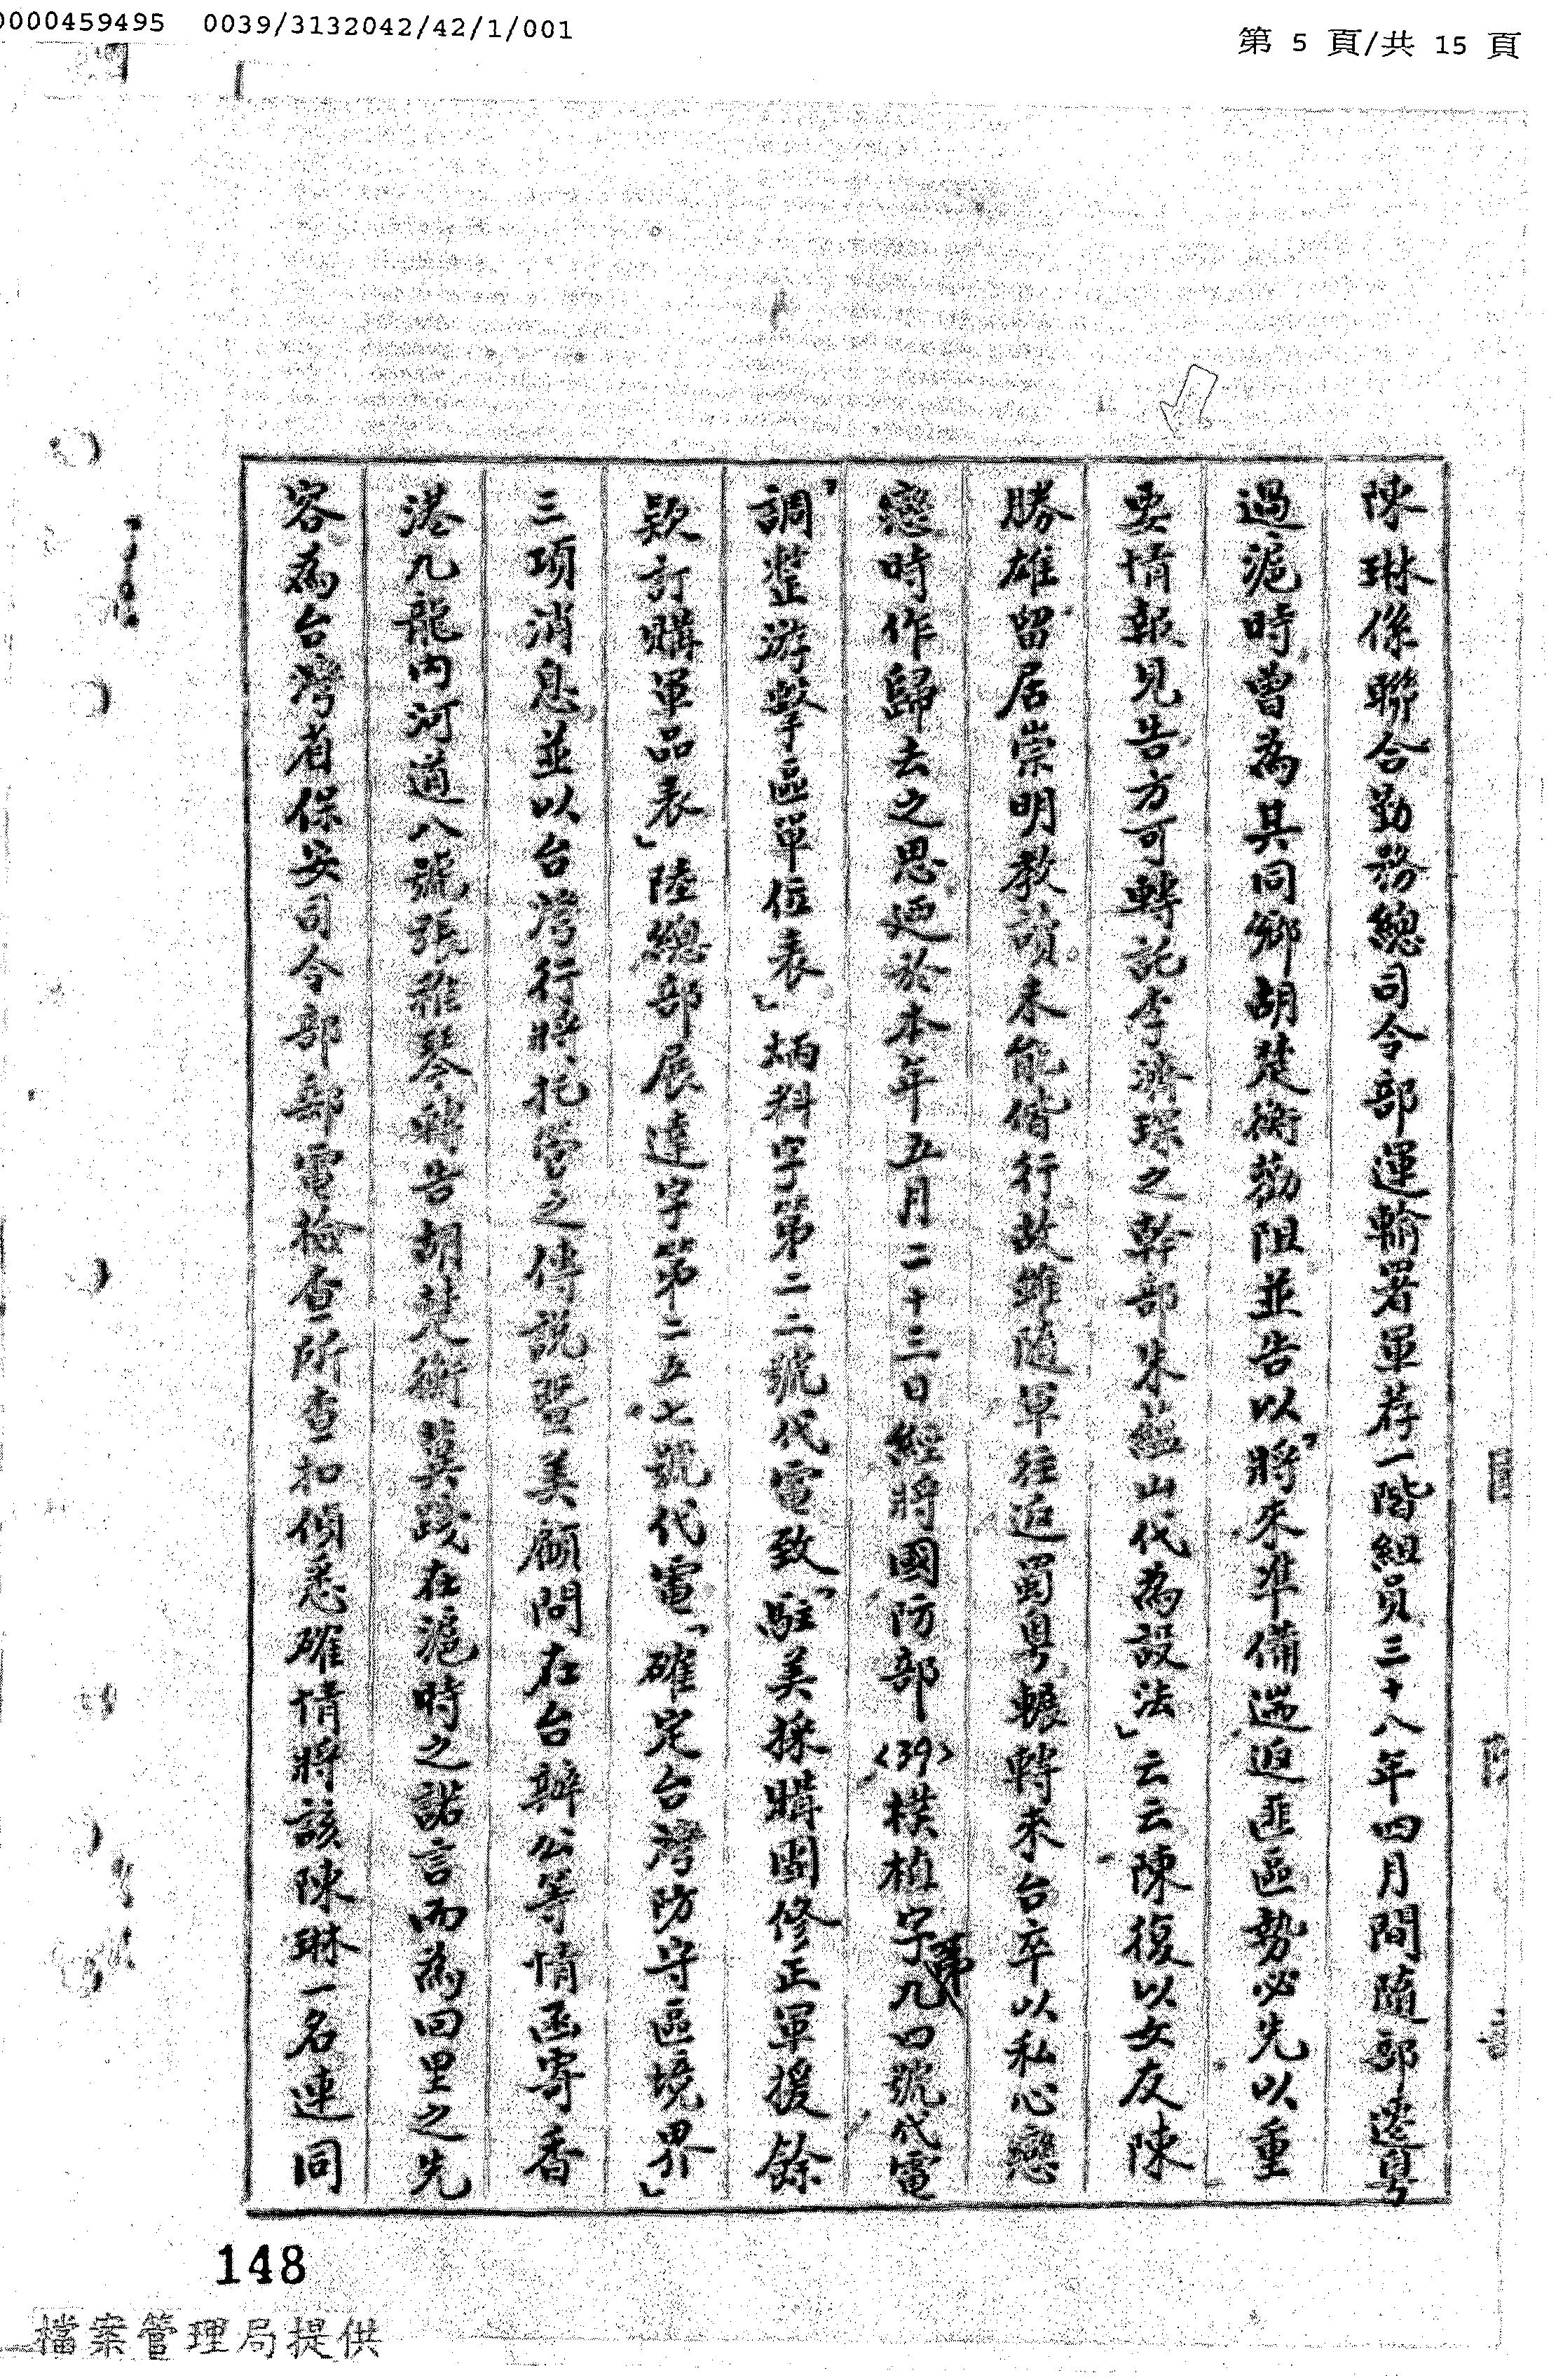 0000459495 0039/3132042/42/1/001
第 5 頁/共 15 頁
陳琳係聯合勤務總司令部運輸署軍荐一階組員三十八年四月間隨部遷粵
過滬時曾為其同鄉胡楚衡勸阻並告以「將來準備遄返匪區勢必先以重
要情報見告方可轉託李濟琛之幹部朱蘊山代為設法」云云陳復以女友陳
勝雄留居崇明教讀未能偕行故雖隨軍往返蜀粵輾轉來台卒以私心戀
戀時作歸去之思迺於本年五月二十三日經將國防部(39)樸植字第九四號代電
「調整游擊區單位表」炳料字第二二號代電致「駐美採購團修正軍援餘
款訂購軍品表」陸總部展達字第二五七號代電「確定台灣防守區境界」
三項消息並以台灣行將托管之傳說暨美顧問在台辦公等情函寄香
港九龍內河道八號張雅琴轉告胡楚衡冀踐在滬時之諾言而為回里之先
容為台灣省保安司令部郵電檢查所查扣偵悉確情將該陳琳一名連同
148
檔案管理局提供